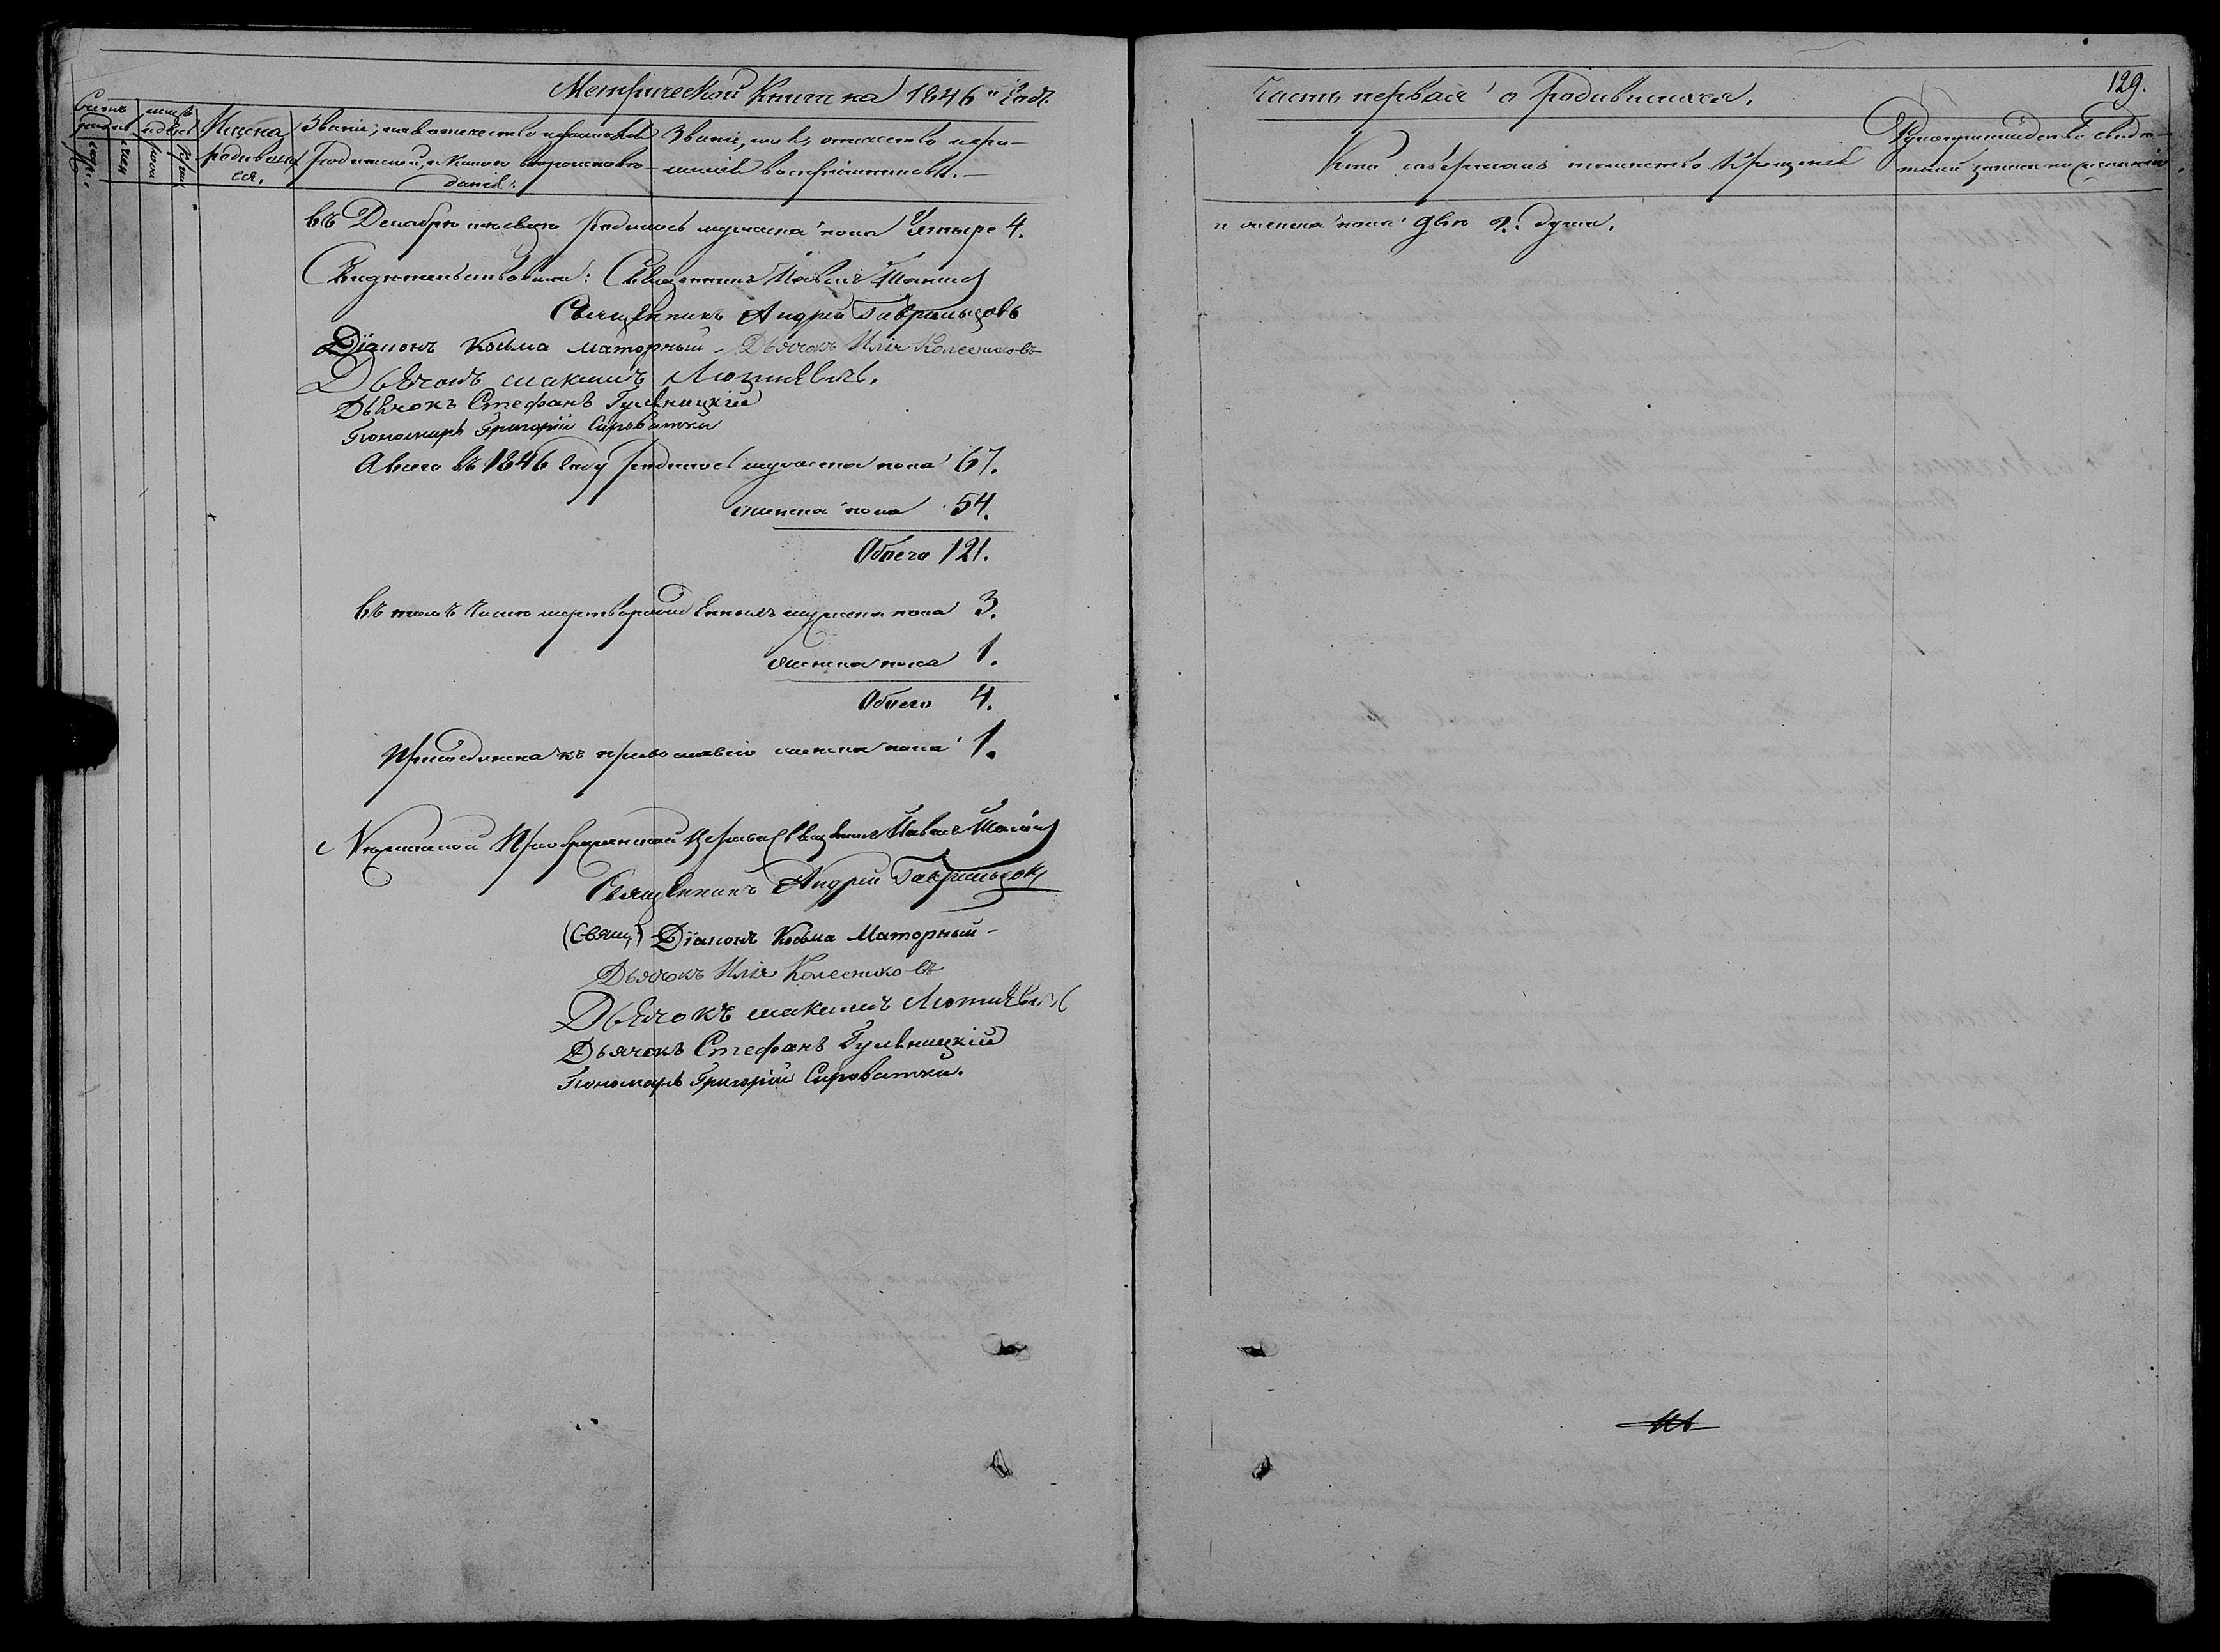 Метрической Книги на 1846 й Годъ
Часть первая о Родившихся.
129.
Счетъ родив
Мѣсяцъ и день
Имена родивших ся.
Званіе, имя, отчество и фамилія Родителей, и какого вѣроисповѣ- данія.
Званіе, имя, отчество и фа- милія воспріемниковъ.
Кто совершалъ таинство Крещенія
Рукоприкладство свидѣ- телей записи по желанію.
въ Декабрѣ мѣсяцѣ родилось мужеска пола Четыре 4.
и женска пола двѣ 2. души.
Свидѣтельствовали: Священникъ Павелъ
Священникъ Андрей Гаврильцовъ
Діаконъ Косьма Маторный - Дьячокъ Илія Колесниковъ
Дьячокъ Максимъ
Дьячокъ Стефанъ Гульницкій
Пономарь Григорій Сыроватки
А всего въ 1846 Году родилось мужеска пола 67.
женска пола 54.
Обоего 121.
въ томъ числѣ мертворожденныхъ мужеска пола 3.
женска пола 1.
Обоего 4.
Присоединена къ православію женска пола 1.
Преображенской церкви Священникъ Павелъ
Священникъ Андрей Гаврильцовъ
(Свящ) Діаконъ Косьма Маторный -
Дьячокъ Илія Колесниковъ
Дьячокъ Максимъ
Дьячокъ Стефанъ Гульницкій
Пономарь Григорій Сыроватки.